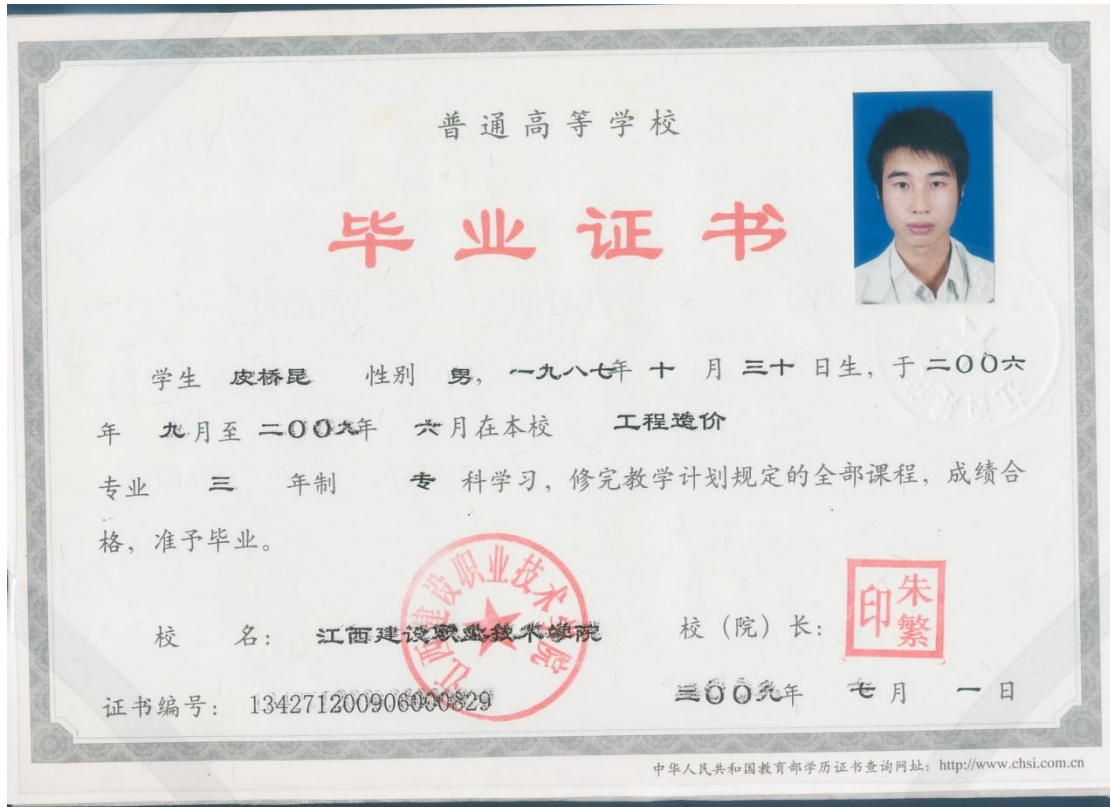 普通高等学校
毕业证书
学生 皮桥昆 性别 男，一九八七年 十 月 三十 日生，于 二〇〇六
年 九月至 二〇〇九年 六月在本校 工程造价
专业 三 年制 专 科学习，修完教学计划规定的全部课程，成绩合
格，准予毕业。
江西建设职业技术学院
校 名： 江西建设职业技术学院 校（院）长： 朱繁印
证书编号： 134271200906000829 二〇〇九年 七月 一日
中华人民共和国教育部学历证书查询网址：http://www.chsi.com.cn